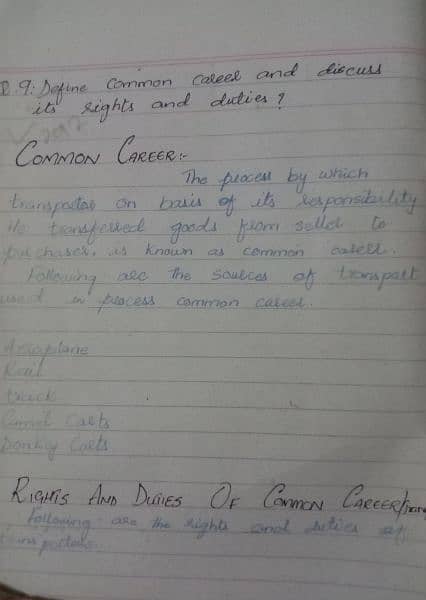 Q.9: Define common career and discuss
its rights and duties?
2012
COMMON CAREER:-
The process by which
transporter on basis of its responsibility
He transferred goods from seller to
purchaser, is known as common career.
Following are the sources of transport
used in process common career.
Aeroplane
Rail
truck
Camel Carts
Donkey Carts
RIGHTS AND DUTIES OF COMMON CAREER/
Following are the rights and duties of
transporters.